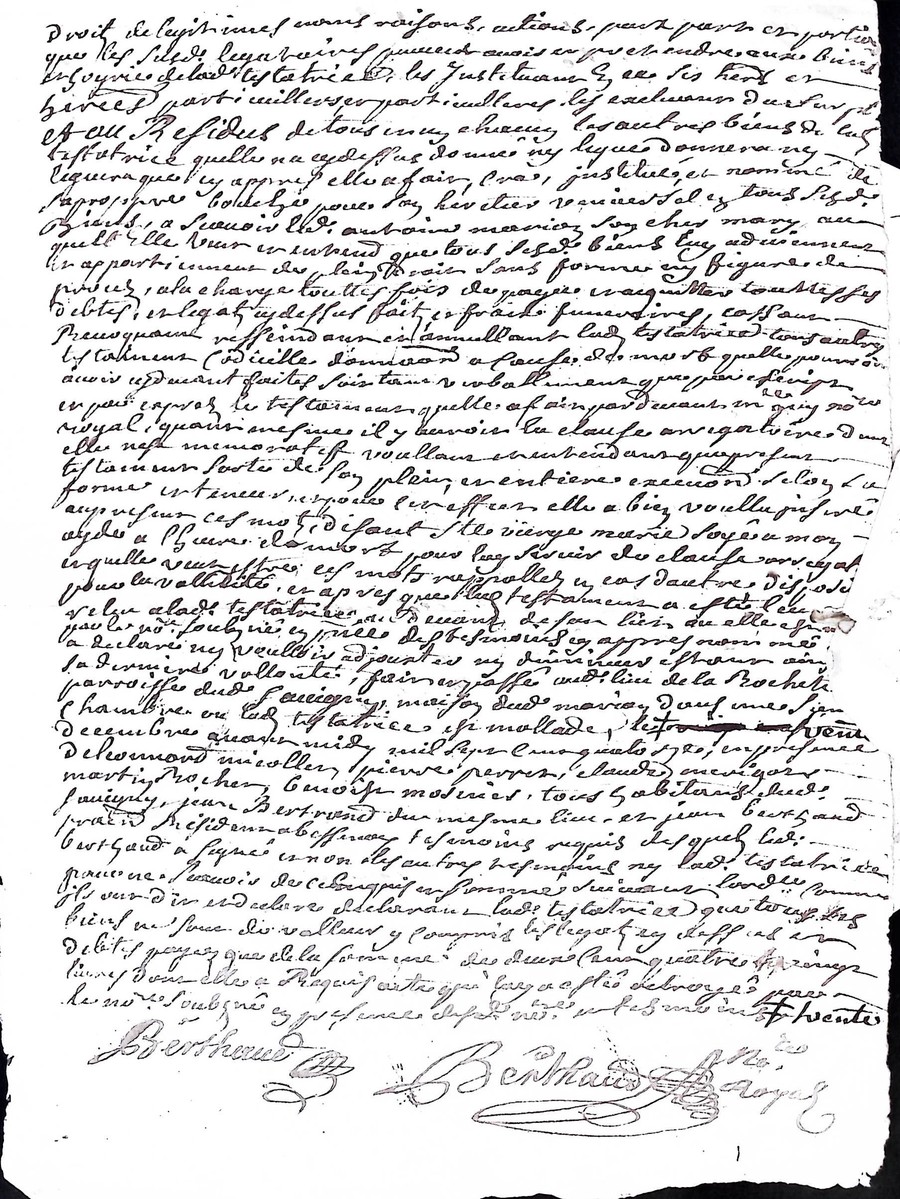 Droit de legitimes noms raisons, actions, part et portion
que les susd. legataires peuvent avoir et pretendre aux biens
et hoyrie de lad. testatrice, les Instituant en ce ses hers et
heres particuilliers et particuilleres les excluant du surplus
Et au Residus de tous un chacun les autres biens de lad.
testatrice quelle na cydessus donné ny legué donnera ny
leguera que cy appres elle a fait, créé, institué, et nommé de
sa propre bouche pour son heritier universel en tous sesd.
Biens, a scavoir led. antoine marion son cher mary au
quel Elle veut et entend que tous sesd. biens luy adviennent
et appartiennent de plain Droit sans forme ny figure de
procès, a la charge touttes fois de payer et aquitter touttes ses
debtes, et legats cydessus fait, et fraits funeraires, cassant
Revocquant resseindant et annullant lad. testatrice tous autres
testament Codicille donnation a cause de mort quelle pourroit
avoir cydevant faites soit tant verballement que par escript
et par exprès le testament quelle a fait pardevant me
royal, quand mesme il y auroit la clause arrogatoire dont
elle nest memoratif voullant et entendant que present
testament sorte de son plein, et entiere execuon selon sa
forme et teneur, et pour cet effet elle a bien voullu inserer
au present ces mots, disant Ste vierge marie soyé a mon
ayde a l'heure de mort pour luy servir de clause
et quelle veut estre ces mots rappellez en cas dautre disposi
pour la validité, et apres que led. testament a esté leu
relu a lad. testatrice au devant de son lict ou elle est
par le nore soubzné en pnce des tesmoins cy appres nommé
a declaré ny voulloir adjouter ny diminuer estant ainsi
sa derniere vollonté, fait et passé aud. lieu de la Roche
parroisse dud. Savigny, maison dud. marion dans une sien
Chambre ou lad. testatrice est mallade, le vent
decembre avant midy mil sept cent quatorze, en presence
De leonnard micollet, pierre perret, claude merigot
martin Rochet, benoist mosnier, tous habitans dud.
Savigny, jean Bertrand du mesme lieu, et jean berthaud
prain Residant a bessenay tesmoins requis desquels led.
berthaud a signé et non les autres tesmoins ny lad. testatrice
pour ne scavoir de ce enquis et sommé suivant lordce comme
ils ont dit et declaré declarant lad. testatrice que tous ses
biens ne sont de valleur y compris les legats cy dessus et
debtes payez que de la somme de deux cent quatre vingt
livres dont elle a Requis acte qui luy a esté octroyé par
le nore Soubzné en presence desd. tesmoins ✝ vente
Berthaud
Berthaud
No.re Royal